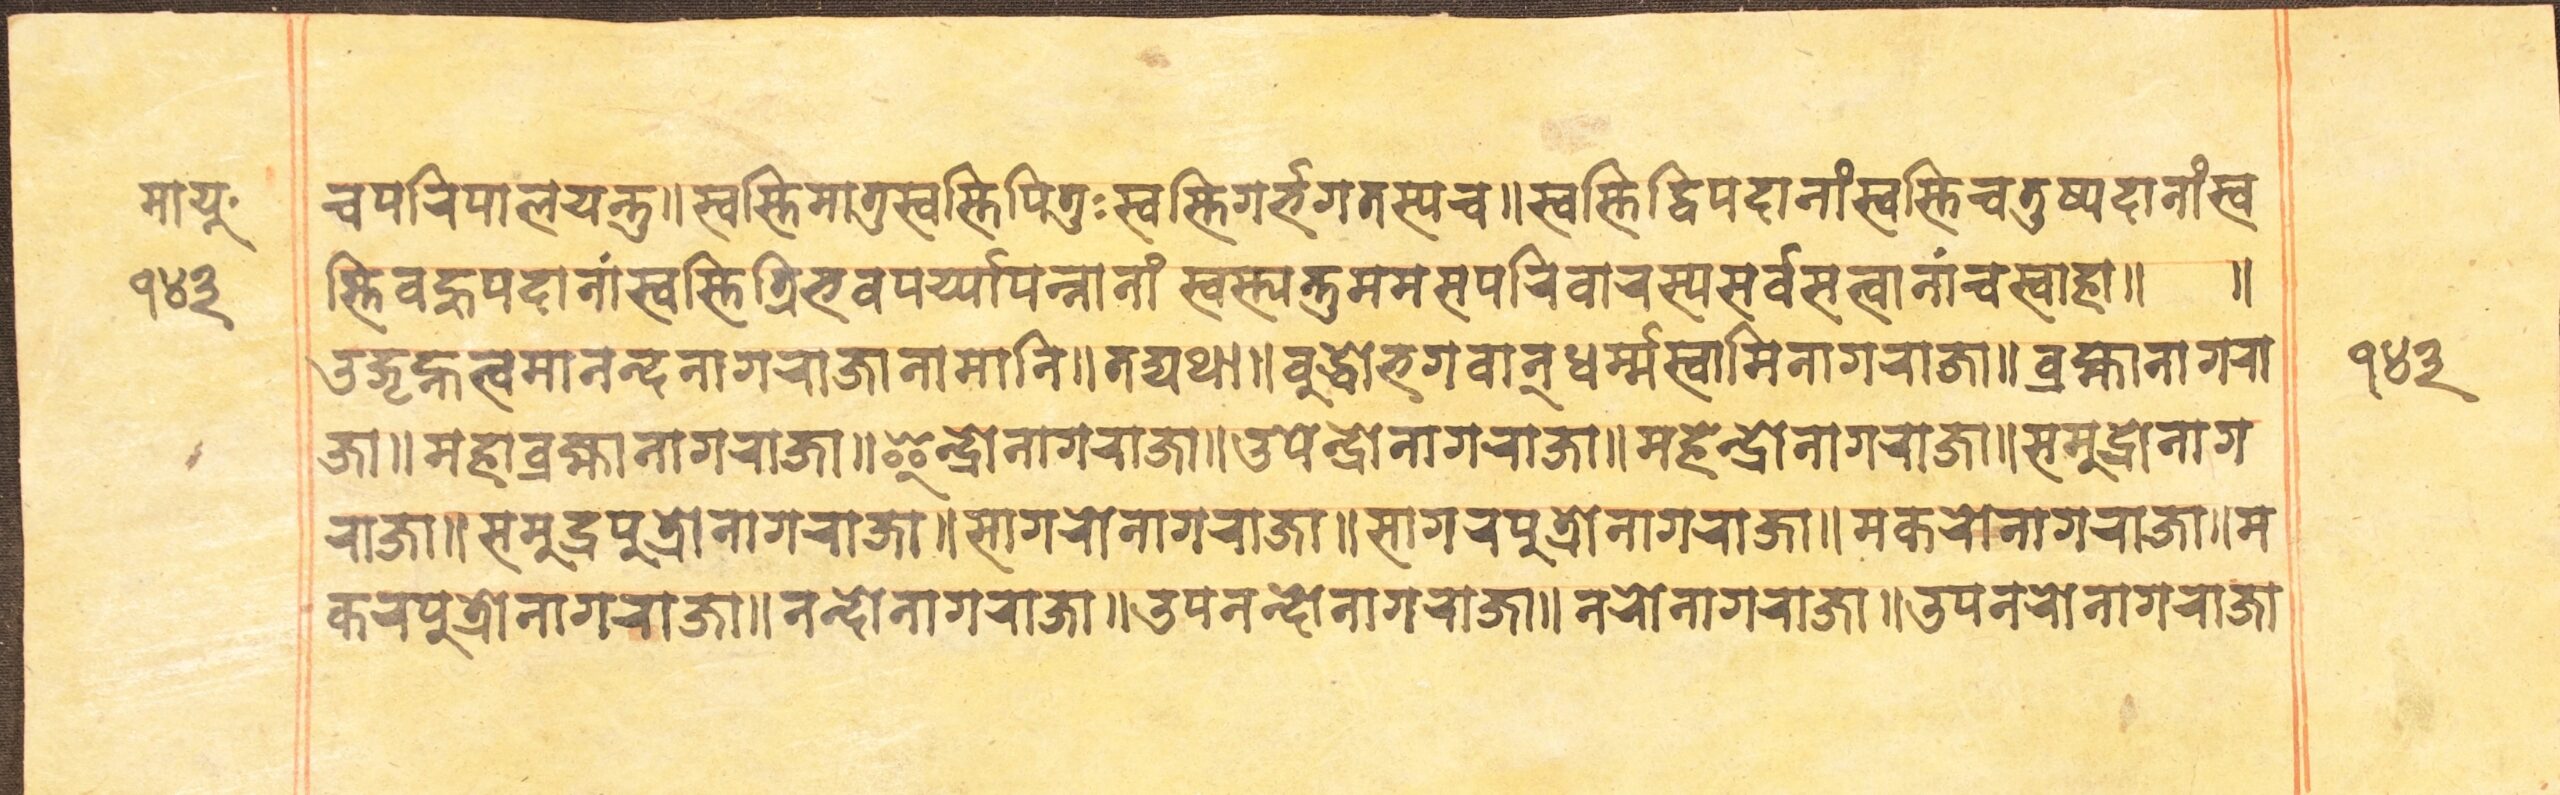 मायूः
१४३
चपरिपालयन्तु॥स्वस्तिमातुस्वस्तिपितुःस्वस्तिगर्भगतस्यच॥स्वस्तिद्विपदानांस्वस्तिचतुष्पदानांस्व
स्तिवहुपदानांस्वस्तित्रिभवपर्य्यापन्नानां स्वस्त्यन्तुममसपरिवारस्यसर्वसत्वानांचस्वाहा॥ ॥
उद्गृह्नत्वमानन्दनागराजानामानि॥तद्यथा॥वुद्धोभगवान्धर्म्मस्वामिनागराजा॥व्रह्मानागरा
जा॥महाव्रह्मानागराजा॥इन्द्रोनागराजा॥उपेन्द्रोनागराजा॥महेन्द्रोनागराजा॥समुद्रोनाग
राजा॥समुद्रपुत्रोनागराजा॥सागरोनागराजा॥सागरपुत्रोनागराजा॥मकरोनागराजा॥म
करपुत्रोनागराजा॥नन्दोनागराजा॥उपनन्दोनागराजा॥नरोनागराजा॥उपनरोनागराजा
१४३